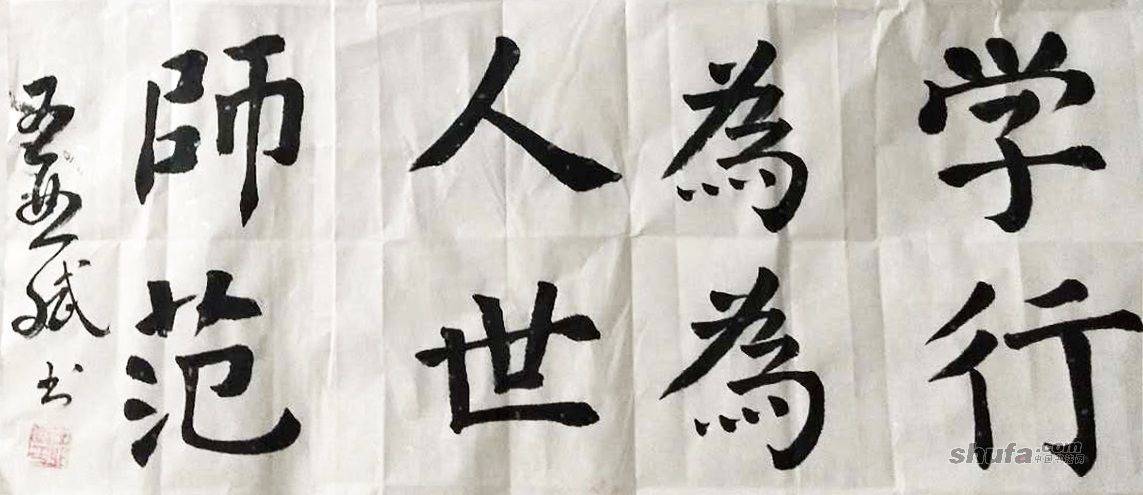 学為人師
行為世范
书
shufa.com
中国书法网